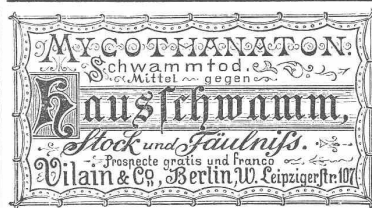 MYCOTHANATON.
Schwammtod.
Mittel gegen
Hausschwamm,
Stock und Fäulniſs.
Prospecte gratis und franco
Vilain & Co., Berlin, W. Leipzigerstr. 107